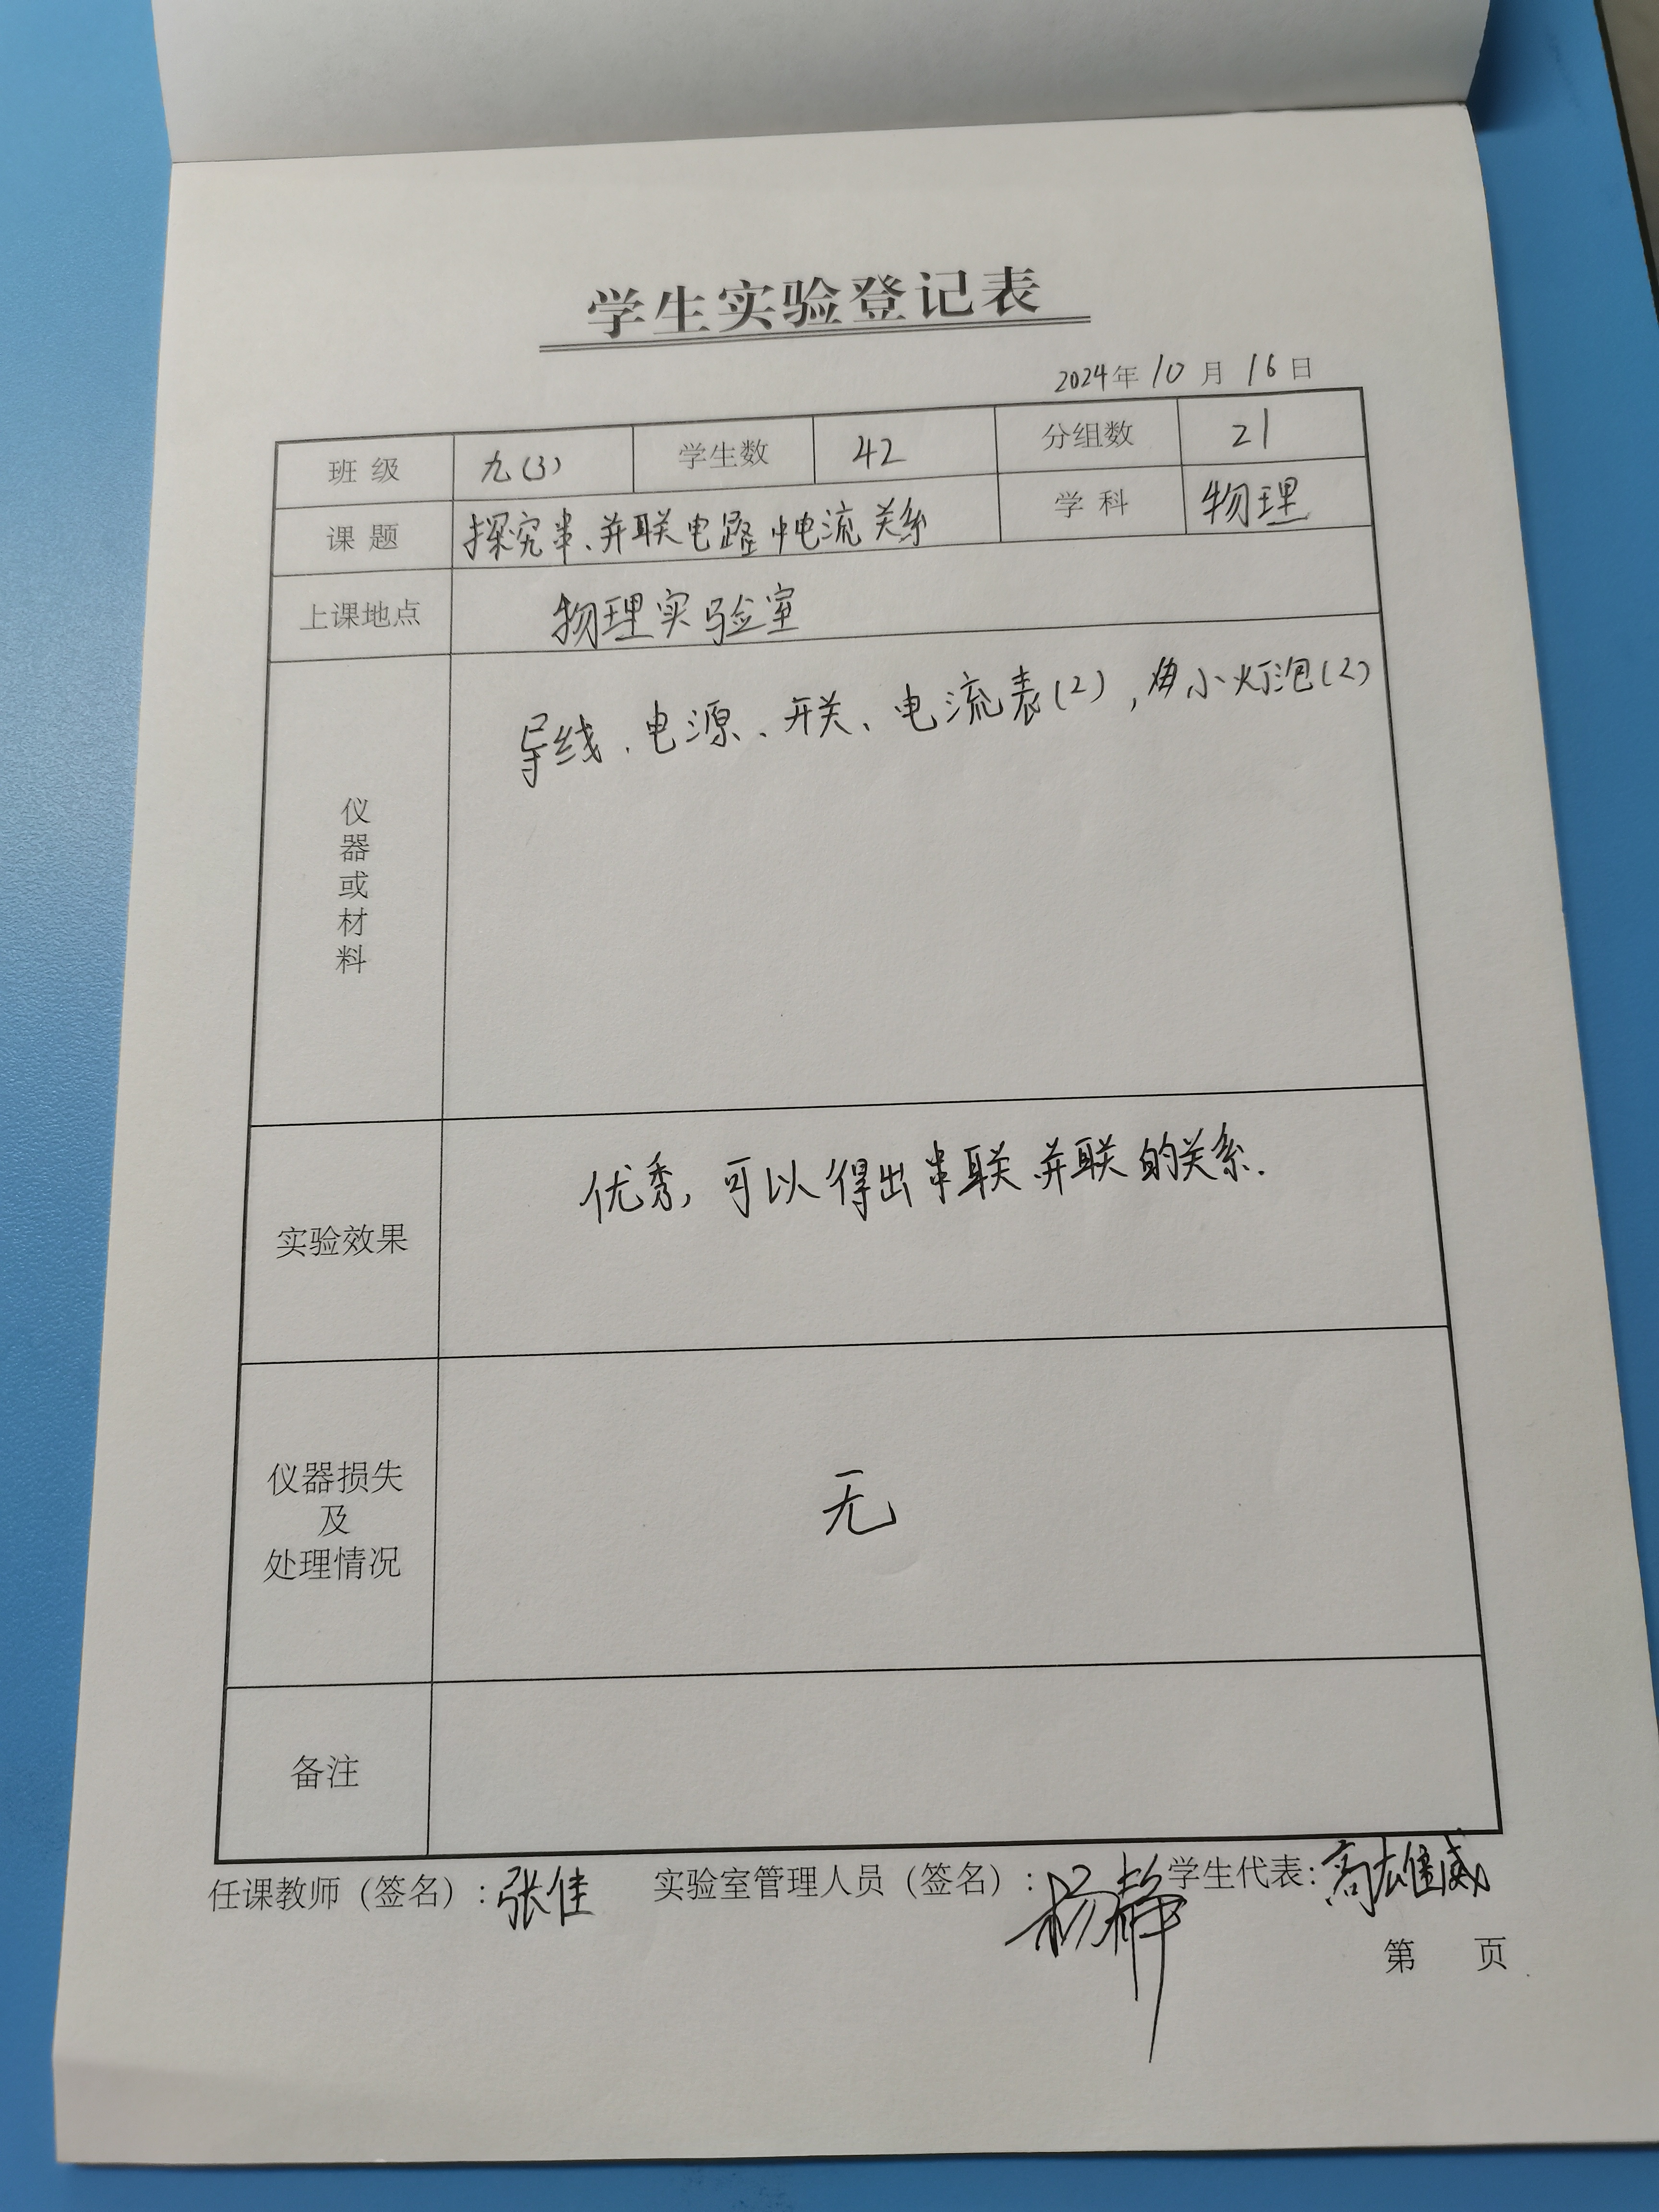 学生实验登记表
2024年10月16日
班级 九(3) 学生数 42 分组数 21
课题 探究串、并联电路中电流关系 学科 物理
上课地点 物理实验室
仪器或材料 导线、电源、开关、电流表(2),小灯泡(2)
实验效果 优秀,可以得出串联并联的关系.
仪器损失
及
处理情况
无
备注
任课教师(签名):张佳 实验室管理人员(签名):杨静 学生代表:高雄威
第 页